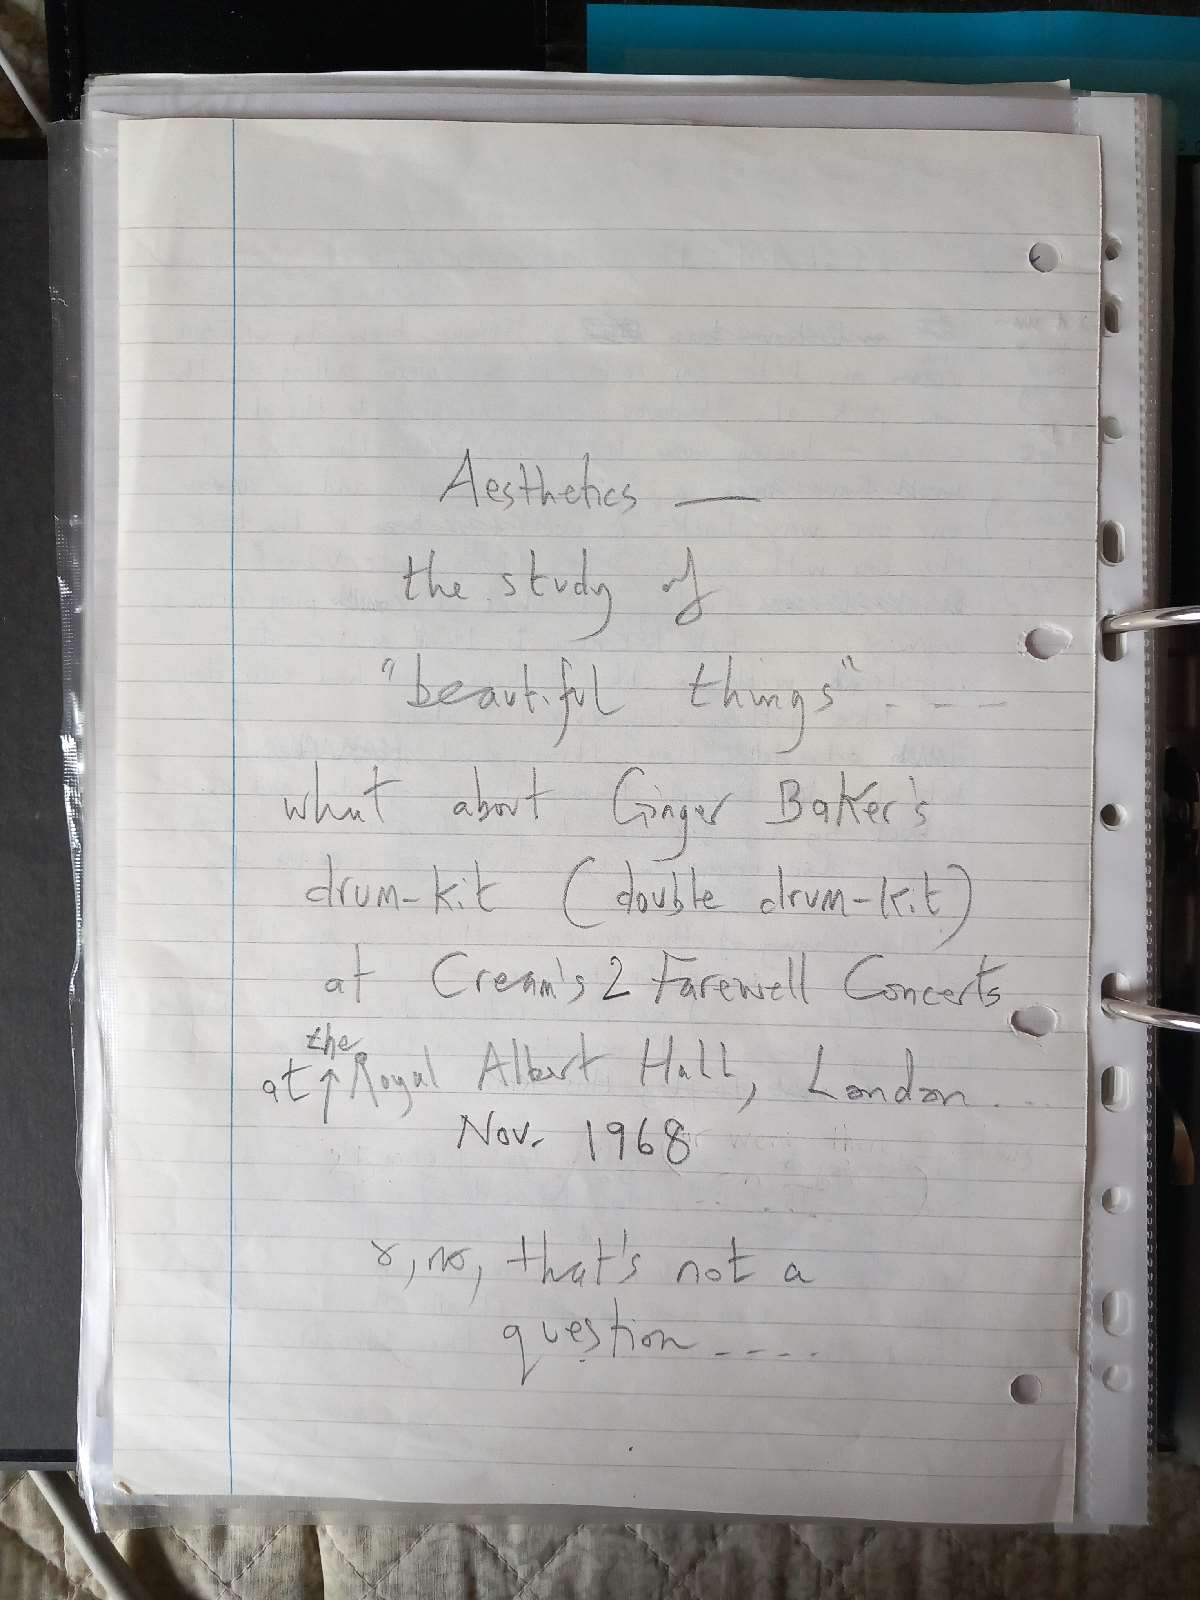 Aesthetics —
the study of
"beautiful things" - - - -
what about Ginger Baker's
drum-kit (double drum-kit)
at Cream's 2 Farewell Concerts
at ↑ the Royal Albert Hall, London ...
Nov. 1968
&, no, that's not a
question - - - -